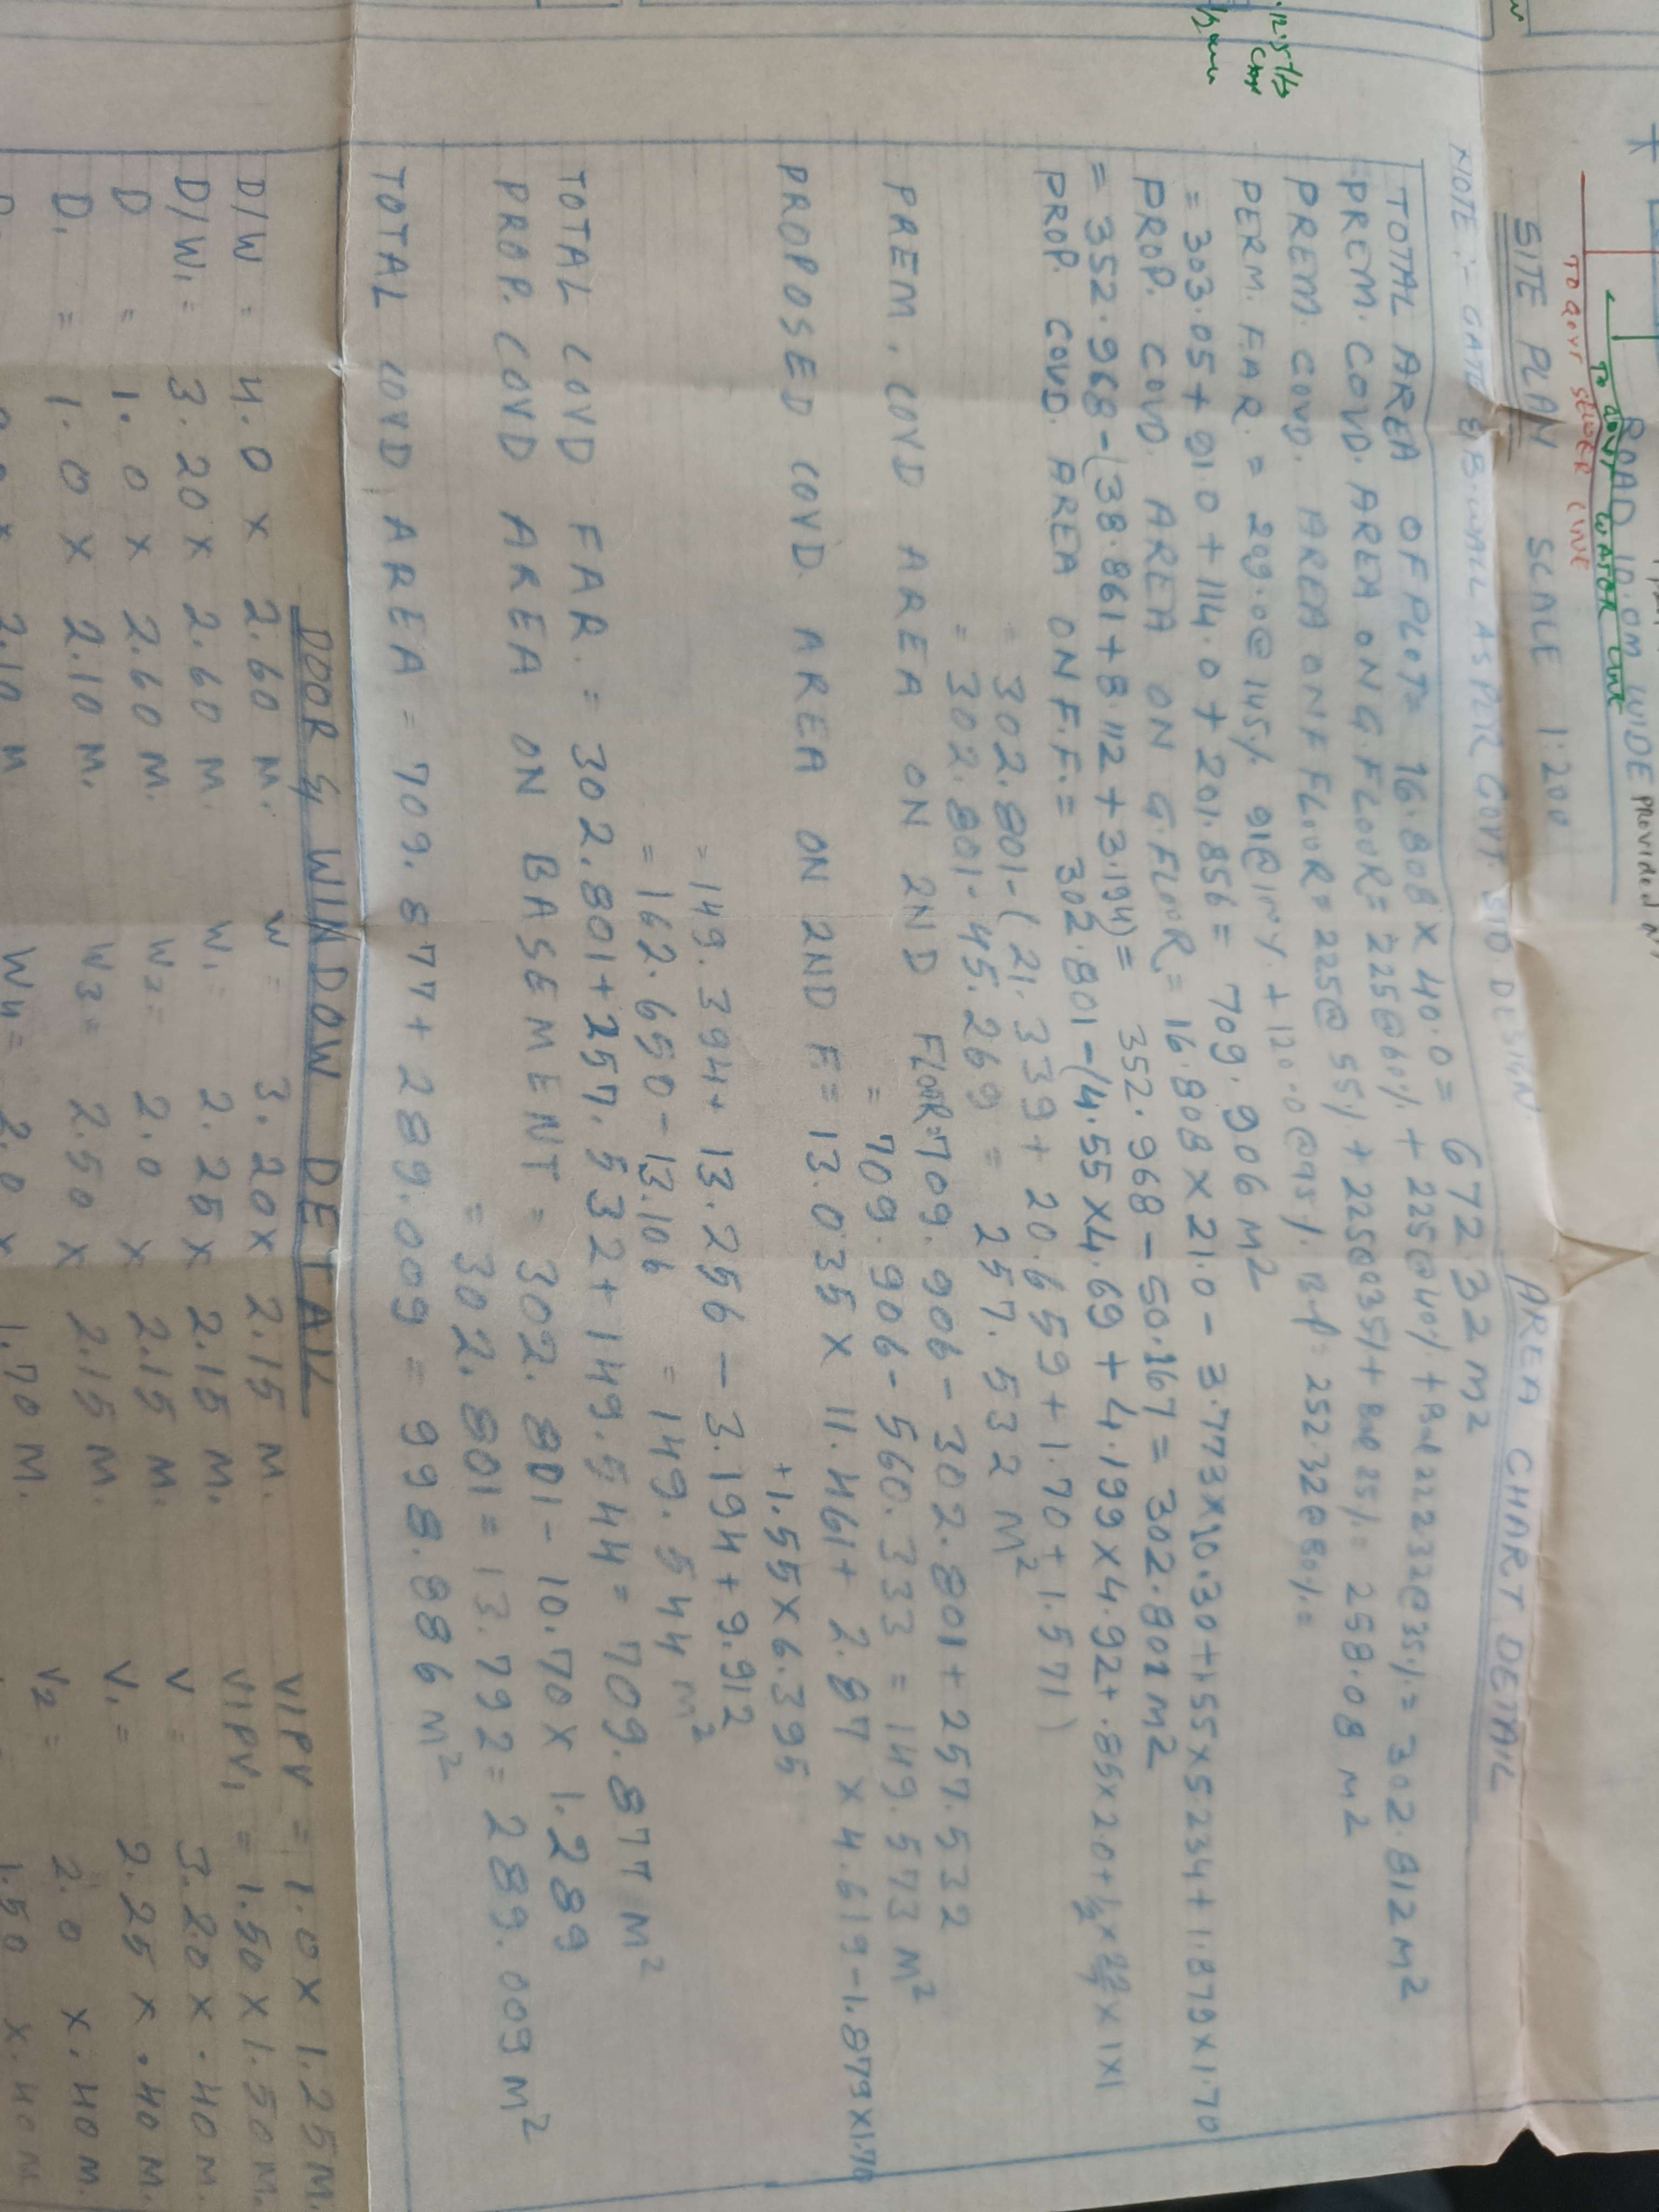 ROAD 10.0M WIDE PROVIDED
TO GOVT WATER LINE
TO GOVT SEWER LINE
SITE PLAN SCALE 1:200
NOTE :- GATE & B.WALL AS PER GOVT. STD DESIGN
AREA CHART DETAIL
TOTAL AREA OF PLOT= 16.808 X 40.0 = 672.32 M2
PREM. COVD. AREA ON G.FLOOR= 225@60% + 225@40% + 222.32@35%= 302.812 M2
PREM. COVD. AREA ON F FLOOR= 225@ 55% + 225@35% + 25%= 258.08 M2
PERM. F.A.R. = 209.0@145% + 120.0@95% 252.32@80%=
= 303.05 + 91.0 + 114.0 + 201.856 = 709.906 M2
PROP. COVD. AREA ON G.FLOOR= 16.808 X 21.0 - 3.773X10.30+1.55X5.234+1.879X1.70
= 352.968-(38.861+8.112+3.194)= 352.968-50.167 = 302.801 M2
PROP. COVD. AREA ON F.F.= 302.801-(4.55X4.69+4.199X4.92+.85X2.0+½X22/7X1X1
= 302.801-(21.339+20.659+1.70+1.571)
= 302.801-45.269 = 257.532 M2
PREM. COVD AREA ON 2ND FLOOR=709.906-302.801+257.532
= 709.906-560.333 = 149.573 M2
PROPOSED COVD. AREA ON 2ND F.= 13.035 X 11.461+ 2.87 X 4.619-1.879X1.70
+1.55X6.395
=149.394+13.256-3.194+9.912
= 162.650-13.106 = 149.544 M2
TOTAL COVD FAR.= 302.801+257.532+149.544= 709.877 M2
PROP. COVD AREA ON BASEMENT= 302.801-10.70X 1.289
= 302.801= 13.792= 289.009 M2
TOTAL COVD. AREA = 709.877+289.009 = 998.886 M2
DOOR & WINDOW DETAIL
D/W = 4.0 X 2.60 M. W = 3.20X 2.15 M. V1PV = 1.0X 1.25M.
D/W1= 3.20X 2.60 M. W1= 2.25X 2.15 M. V1PV1 = 1.50X1.50M.
D = 1.0 X 2.60 M. W2= 2.0 X 2.15 M. V = 3.20X.40M.
D1 = 1.0 X 2.10 M. W3= 2.50 X 2.15 M. V1= 2.25X.40M.
2.10 M W4= 2.0 X 1.70 M. V2= 2.0 X.40M.
1.50 X.40M